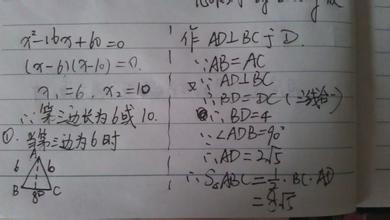 x²-16x+60=0
(x-6)(x-10)=0.
x₁=6, x₂=10
∴第三边长为6或10.
①.当第三边为6时
A
6 6
B 8 D C
作AD⊥BC于D.
∵AB=AC
又∵AD⊥BC
∴BD=DC(三线合一)
∴BD=4
∵∠ADB=90°
∴AD=2√5
∴S△ABC=1/2·BC·AD
=8√5